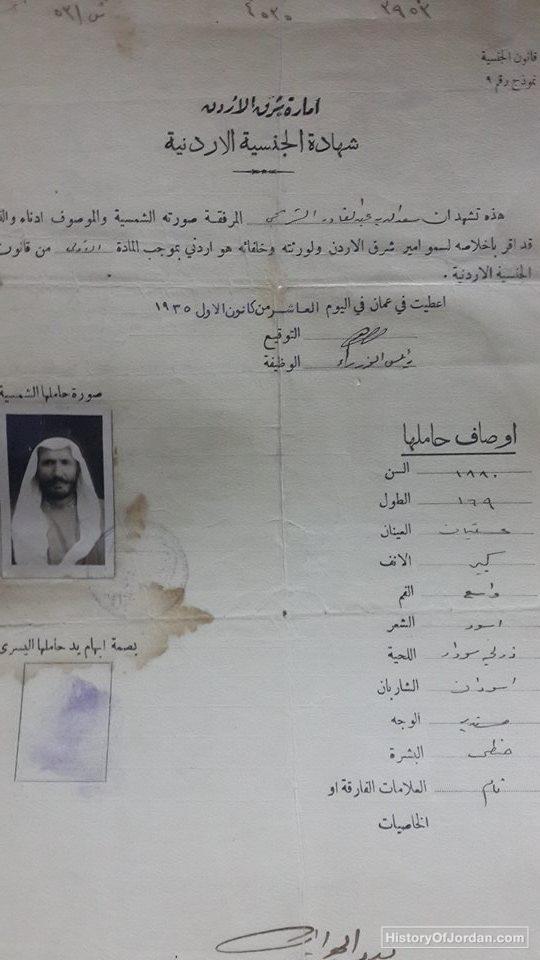 ٣٩٥٣ ٤٥٢٥ ش/٥٣١
قانون الجنسية
نموذج رقم ٩
امارة شرق الاردن
شهادة الجنسية الاردنية
هذه تشهد ان سعد الدين عبدالقادر المرفقة صورته الشمسية والموصوف ادناه
قد اقر باخلاصه لسمو امير شرق الاردن ولورثته وخلفائه هو اردني بموجب المادة الاولى من قانون
الجنسية الاردنية .
اعطيت في عمان في اليوم العاشر من كانون الاول ١٩٣٥
التوقيع
رئيس الوزراء الوظيفة
صورة حاملها الشمسية
اوصاف حاملها
السن ١٨٨٠
الطول ١٦٩
العينان
الانف كبير
الفم واسع
الشعر اسود
اللحية سوداء
الشاربان اسودان
الوجه مستدير
البشرة حنطي
العلامات الفارقة او تام
الخاصيات
بصمة ابهام يد حاملها اليسرى
HistoryOfJordan.com